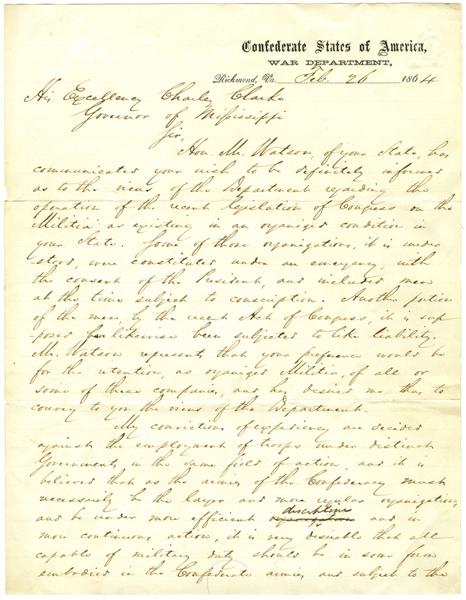 Confederate States of America,
WAR DEPARTMENT,
Richmond, Va. Feb. 26 1864
His Excellency Charles Clarke
Governor of Mississippi
Sir,
Hon Mr. Watson, of your State, has
communicated your wish to be definitely informed
as to the views of the Department regarding the
operation of the recent legislation of Congress on the
Militia, as existing in an organized condition in
your State. Some of those organizations, it is under
stood, were constituted under an emergency, with
the consent of the President, and included men
at the time subject to conscription. Another portion
of the men, by the recent Act of Congress, it is sup
posed likewise been subjected to like liability.
Mr. Watson represents that your preference would be
for the retention, as organized Militia, of all or
some of these companies, and has desired me thus to
convey to you the views of the Department.
My convictions of expediency are decided
against the employment of troops under distinct
Governments, in the same field of action, and it is
believed that as the armies of the Confederacy must
necessarily be the larger and more regular organizations,
discipline
and be under more efficient organizations and in
more continuous action, it is very desirable that all
capable of military duty should be in some form
embodied in the Confederate armies and subject to the